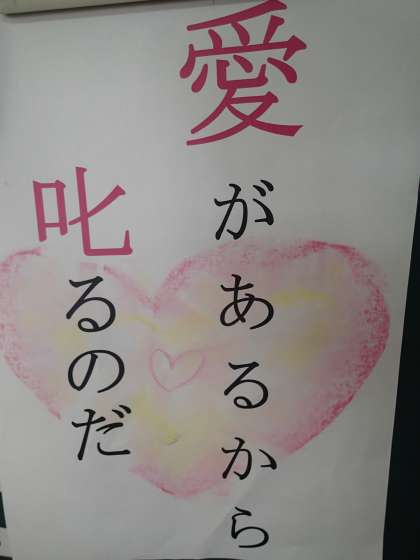 愛があるから
叱るのだ